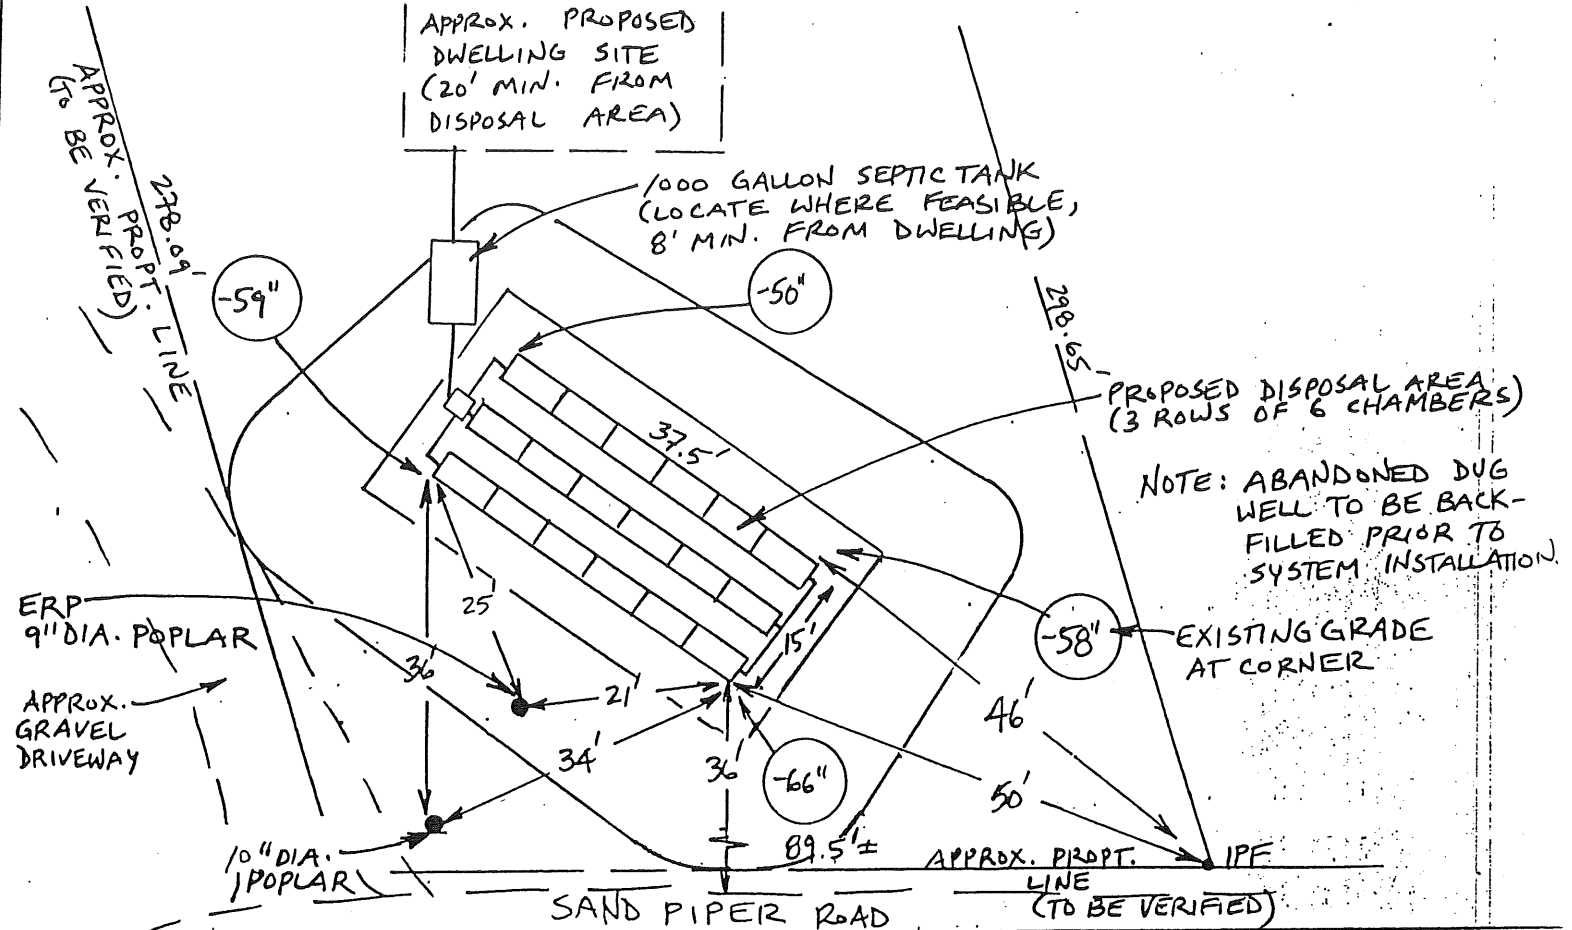 APPROX. PROPOSED
DWELLING SITE
(20' MIN. FROM
DISPOSAL AREA)
APPROX. PROPT. LINE
(TO BE VERIFIED)
278.09'
1000 GALLON SEPTIC TANK
(LOCATE WHERE FEASIBLE,
8' MIN. FROM DWELLING)
-59"
-50"
298.65'
PROPOSED DISPOSAL AREA
(3 ROWS OF 6 CHAMBERS)
37.5'
NOTE: ABANDONED DUG
WELL TO BE BACK-
FILLED PRIOR TO
SYSTEM INSTALLATION.
ERP
9" DIA. POPLAR
25'
15'
-58"
EXISTING GRADE
AT CORNER
36'
21'
46'
APPROX.
GRAVEL
DRIVEWAY
34'
36'
-66"
50'
10" DIA.
POPLAR
89.5'±
APPROX. PROPT.
LINE
(TO BE VERIFIED)
IPF
SAND PIPER ROAD